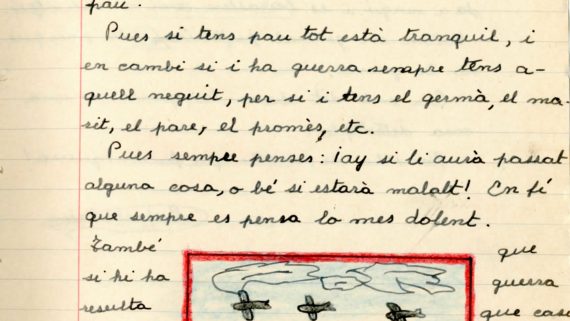 pau.
Pues si tens pau tot està tranquil, i
en cambi si i ha guerra sempre tens a-
quell neguit, per si i tens el germà, el ma-
rit, el pare, el promès, etc.
Pues sempre penses: ¡ay si li aurà passat
alguna cosa, o bé si estarà malalt! En fí
que sempre es pensa lo mes dolent.
També que
si hi ha guerra
resulta que casi